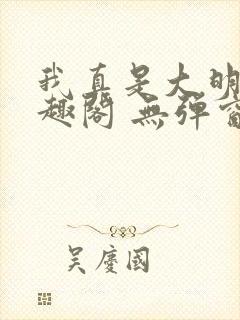 我真是大明
趣閣 無彈窗
吴慶國